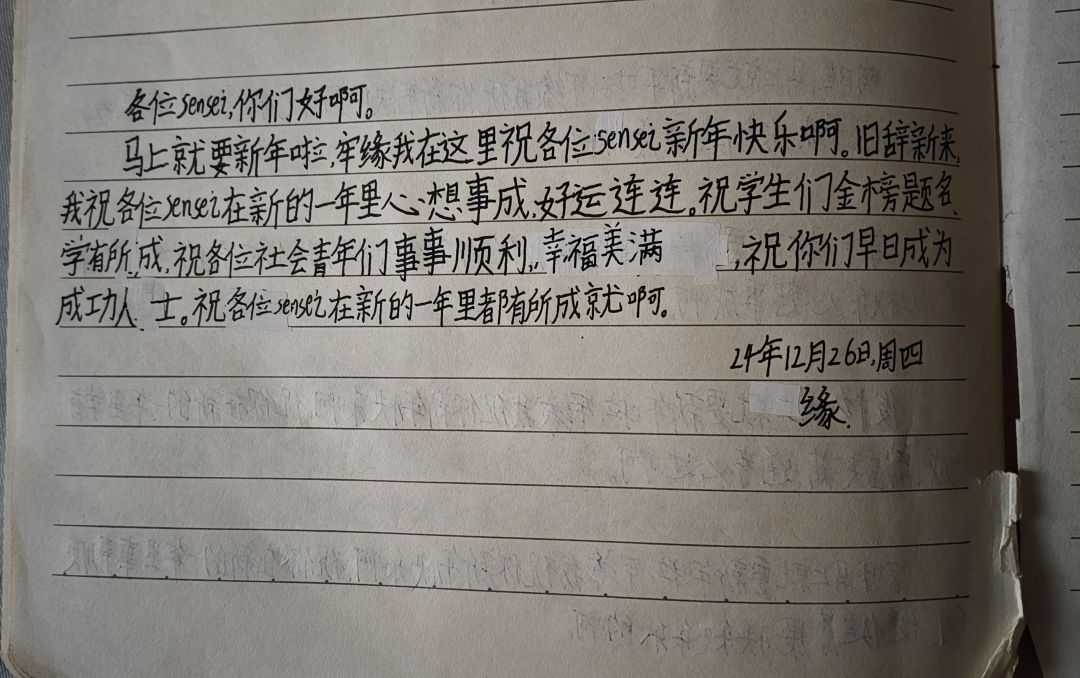 各位sensei,你们好啊。
马上就要新年啦,牢缘我在这里祝各位sensei新年快乐啊。旧辞新来,
我祝各位sensei在新的一年里心想事成,好运连连。祝学生们金榜题名、
学有所成,祝各位社会青年们事事顺利,幸福美满,祝你们早日成为
成功人士。祝各位sensei在新的一年里都有所成就啊。
24年12月26日,周四
缘.